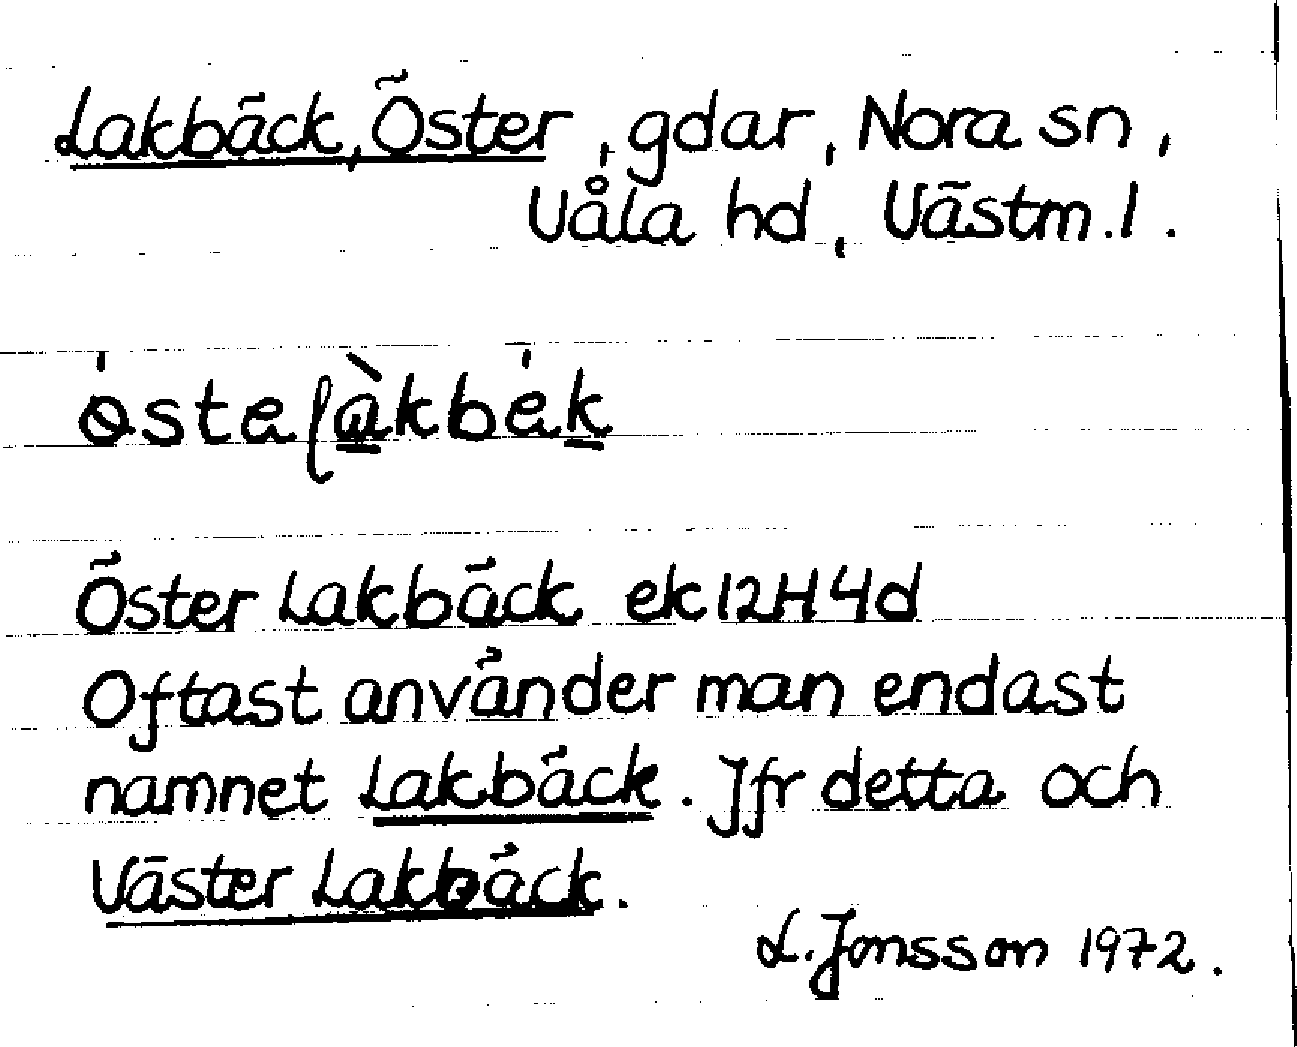 Lakbäck, Öster, gdar, Nora sn,
Våla hd, Västm.l.
Öster Lakbäck ek 12H4d
Oftast använder man endast
namnet Lakbäck. Jfr detta och
Väster Lakbäck.
L. Jonsson 1972.